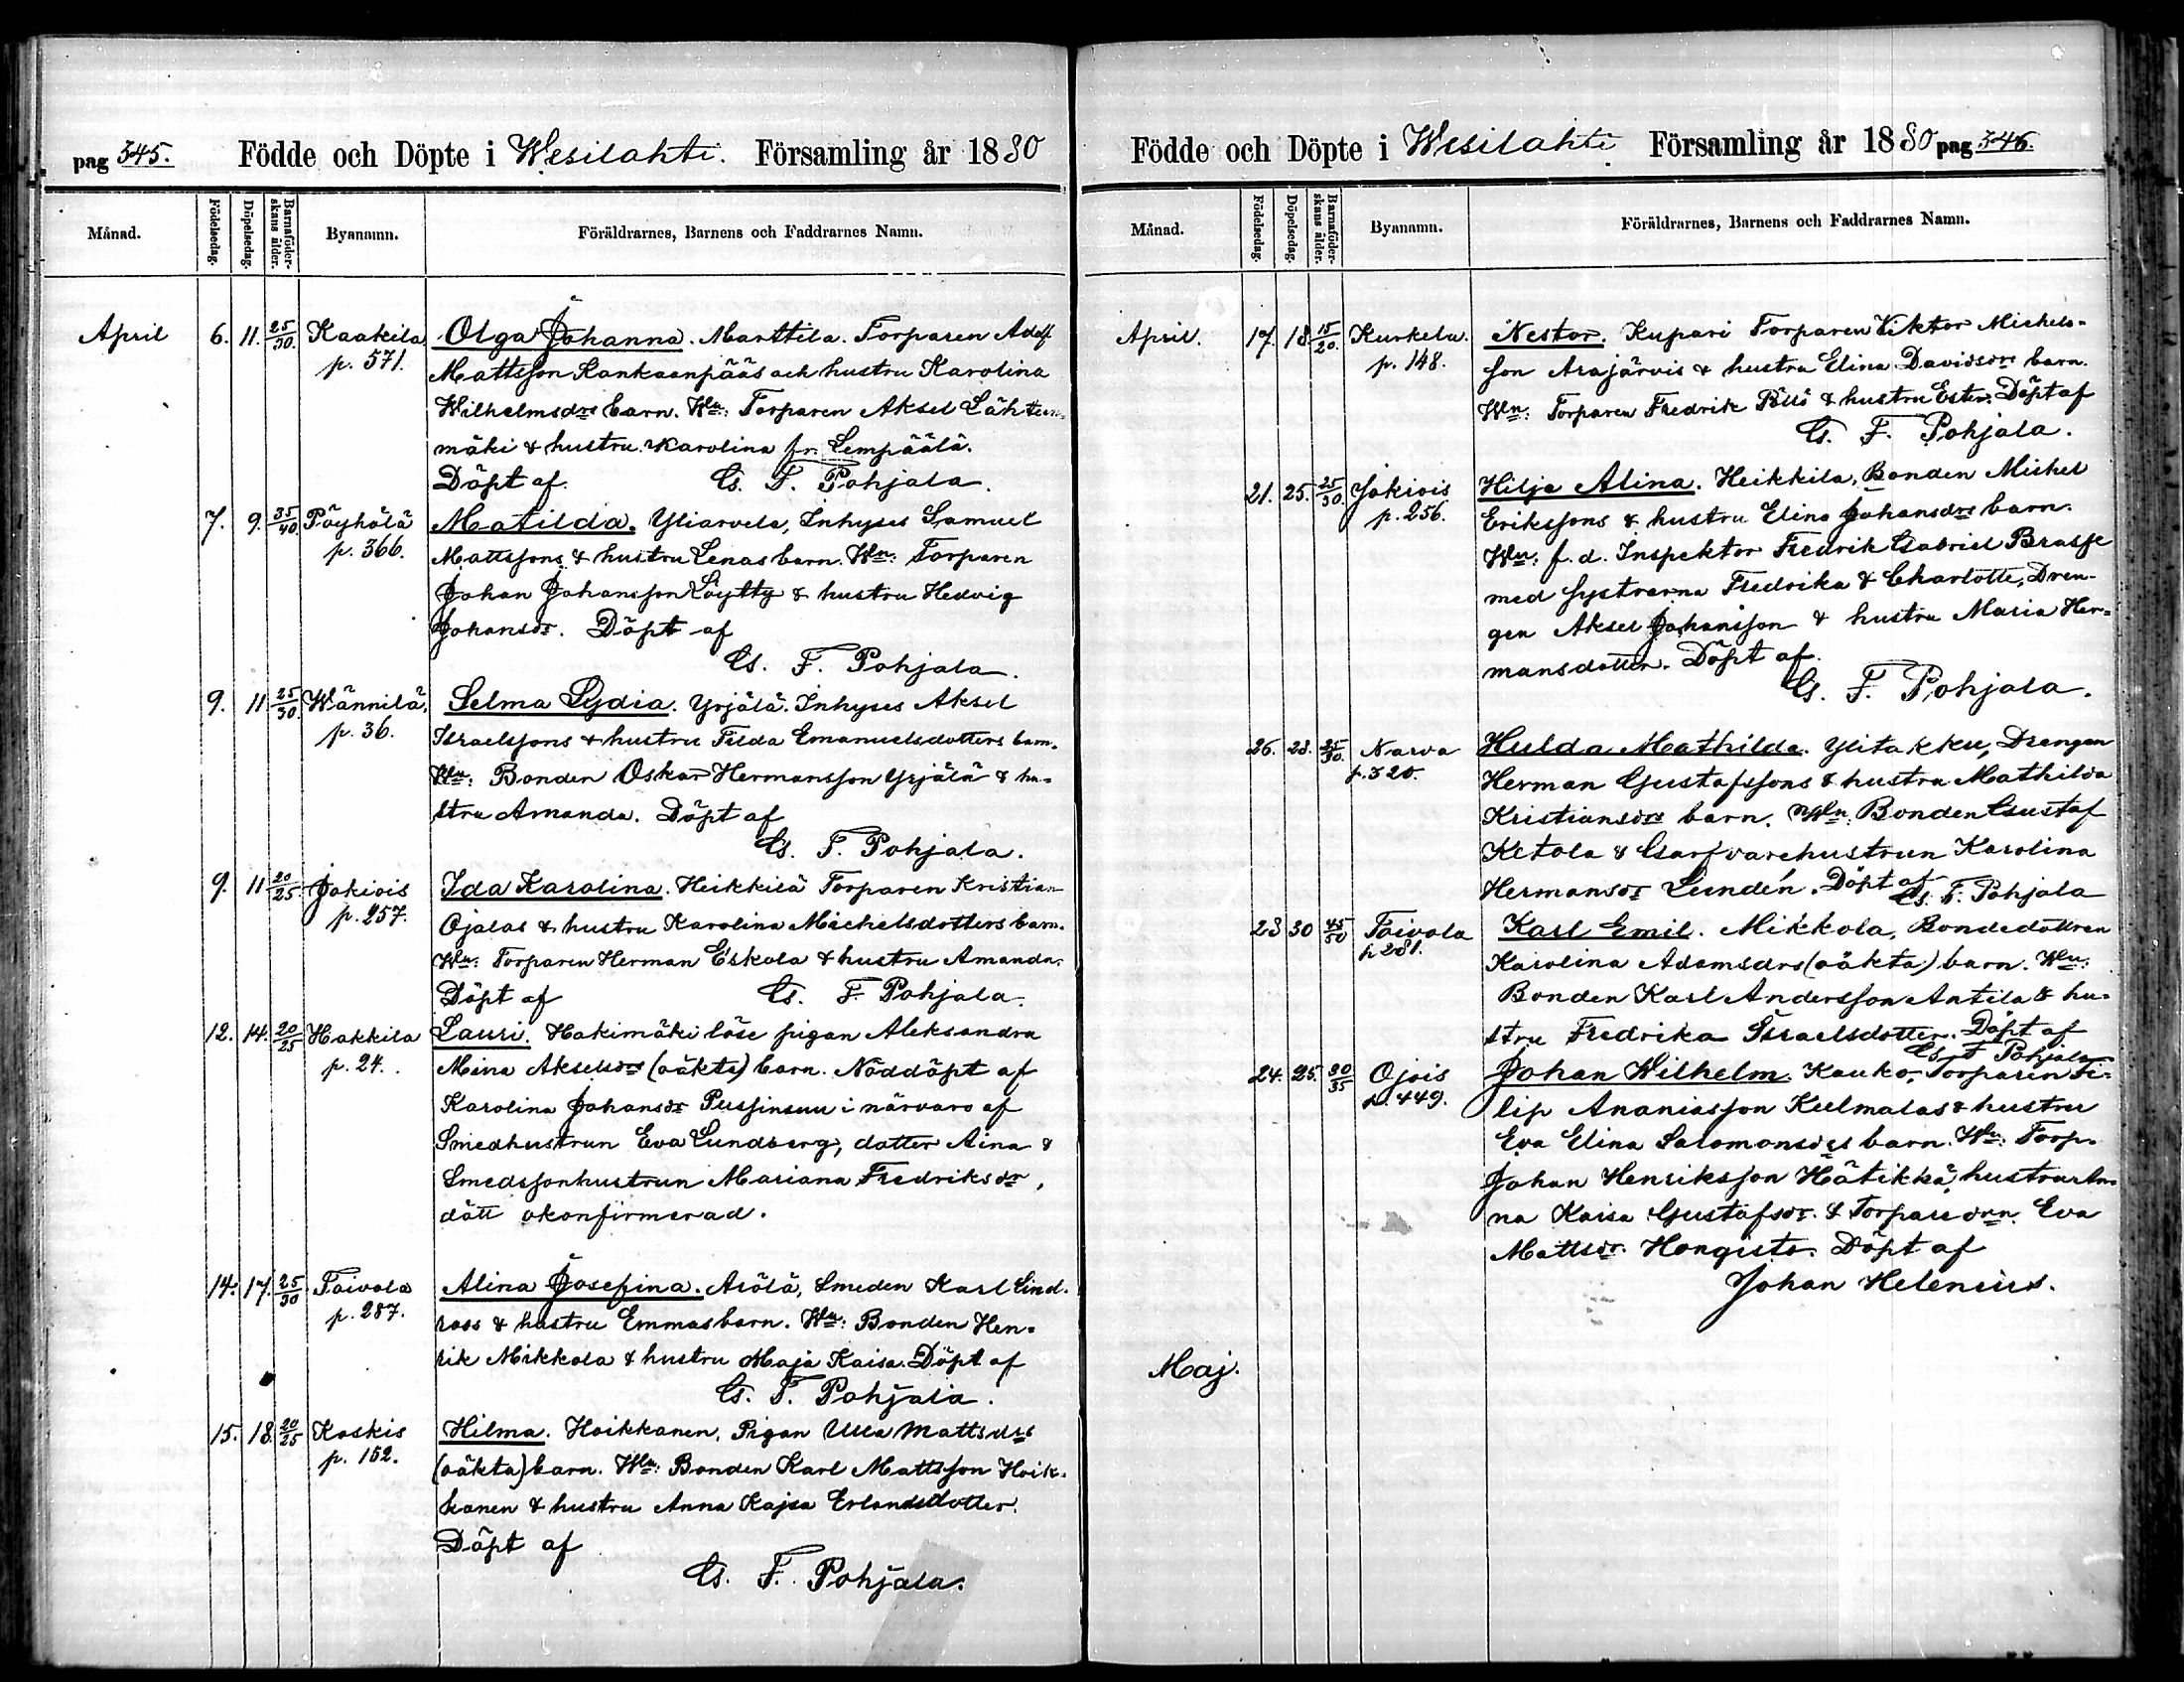 pag 345. Födde och Döpte i Wesilahti. Församling år 1880
Månad. Födelsedag. Döpelsedag. Barnaföderskans ålder. Byanamn. Föräldrarnes, Barnens och Faddrarnes Namn.
April 6. 11. 25/30. Kaakila Olga Johanna. Marttila. Torparen Adolf
p. 571. Mattsson Kankaanpääs och hustru Karolina
Wilhelmsdrs barn. Wn: Torparen Aksel Lähteen-
mäki & hustru Karolina fr. Lempäälä.
Döpt af G. F. Pohjala.
7. 9. 35/40. Pöyhölä Matilda. Yliarvela, Inhyses Samuel
p. 366. Mattssons & hustru Lenas barn. Wn: Torparen
Johan Johansson Löytty & hustru Hedvig
Johansdr. Döpt af
G. F. Pohjala.
9. 11 25/30. Wännilä, Selma Lydia. Yrjälä. Inhyses Aksel
p. 36. Israelssons & hustru Tilda Emanuelsdotters barn.
Wn: Bonden Oskar Hermansson Yrjälä & hu-
stru Amanda. Döpt af
G. F. Pohjala.
9. 11 20/25. Jokiois Ida Karolina. Heikkilä Torparen Kristian
p. 257. Ojalas & hustru Karolina Michelsdotters barn.
Wn: Torparen Herman Eskola & hustru Amanda.
Döpt af G. F. Pohjala.
12. 14. 20/25 Hakkila Lauri. Hakimäki löse pigan Aleksandra
p. 24. Mina Akselsdrs (oäkta) barn. Nöddöpt af
Karolina Johansdr Pussinsuu i närvaro af
Smedhustrun Eva Lundberg, dotter Aina &
Smedssonhustrun Mariana Fredriksdr,
dött okonfirmerad.
14. 17. 25/30 Toivola Alina Josefina. Arölä, Smeden Karl Lind-
p. 287. roos & hustru Emmas barn. Wn: Bonden Hen-
rik Mikkola & hustru Maja Kaisa. Döpt af
G. F. Pohjala.
15. 18. 20/25 Koskis Hilma. Hoikkanen, Pigan Ulla Mattsdrs
p. 152. (oäkta) barn. Wn: Bonden Karl Mattsson Hoik-
kanen & hustru Anna Kajsa Erlandsdotter.
Döpt af
G. F. Pohjala.
Födde och Döpte i Wesilahti Församling år 1880 pag 346.
Månad. Födelsedag. Döpelsedag. Barnaföderskans ålder. Byanamn. Föräldrarnes, Barnens och Faddrarnes Namn.
April. 17. 18 15/20. Kurkela. Nestor. Kupari Torparen Viktor Michels-
p. 148. son Arajärvis & hustru Elina Davidsdrs barn.
Wn: Torparen Fredrik & hustru Ester. Döpt af
G. F. Pohjala.
21. 25. 25/30. Jokiois Hilja Alina. Heikkila, Bonden Michel
p. 256. Erikssons & hustru Elina Johansdrs barn.
Wn: f. d. Inspektor Fredrik Gabriel Brasse
med systrarna Fredrika & Charlotte, Dren-
gen Aksel Johansson & hustru Maria Her-
mansdotter. Döpt af
G. F. Pohjala.
26. 28. 25/30. Narva Hulda Mathilda. Ylitakku, Drengen
p. 320. Herman Gustafssons & hustru Mathilda
Kristiansdrs barn. Wn: Bonden Gustaf
Ketola & Garfvarehustrun Karolina
Hermansdr Lundén. Döpt af
G. F. Pohjala
28 30 45/50 Toivola Karl Emil. Mikkola, Bondedottren
p 281. Karolina Adamsdrs (oäkta) barn. Wn:
Bonden Karl Andersson Antila & hu-
stru Fredrika Israelsdotter. Döpt af
G. F. Pohjala
24. 25. 30/35 Ojois Johan Wilhelm. Kauko, Torparen Fi-
p. 449. lip Ananiasson Kulmalas & hustru
Eva Elina Salomonsdrs barn. Wn: Torp.
Johan Henriksson Hätikkä, hustru An-
na Kaisa Gustafsdr. & Torparedrn. Eva
Mattsdr. Hongisto. Döpt af
Johan Helenius.
Maj.